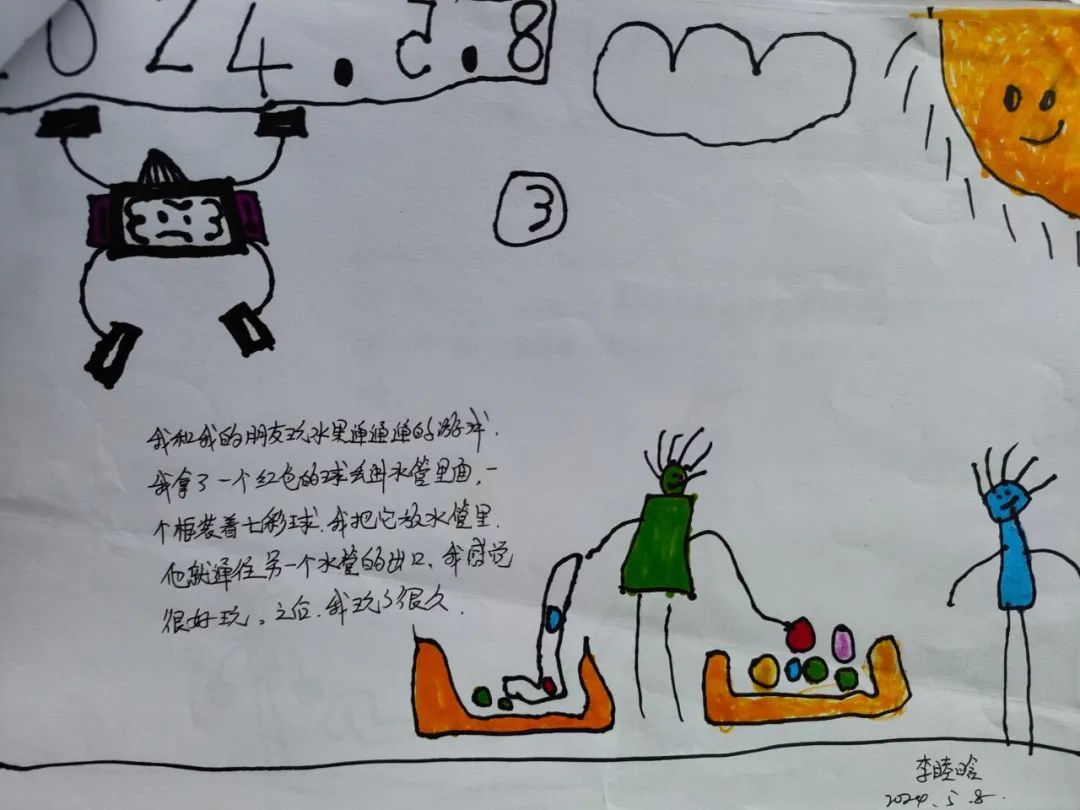 024.5.8
3
我和我的朋友玩水果通通通的游戏.
我拿了一个红色的球丢进水管里面,一
个框装着七彩球.我把它放水管里.
他就通往另一个水管的出口.我感觉
很好玩。之后.我玩了很久.
李睦晗
2024.5.8.